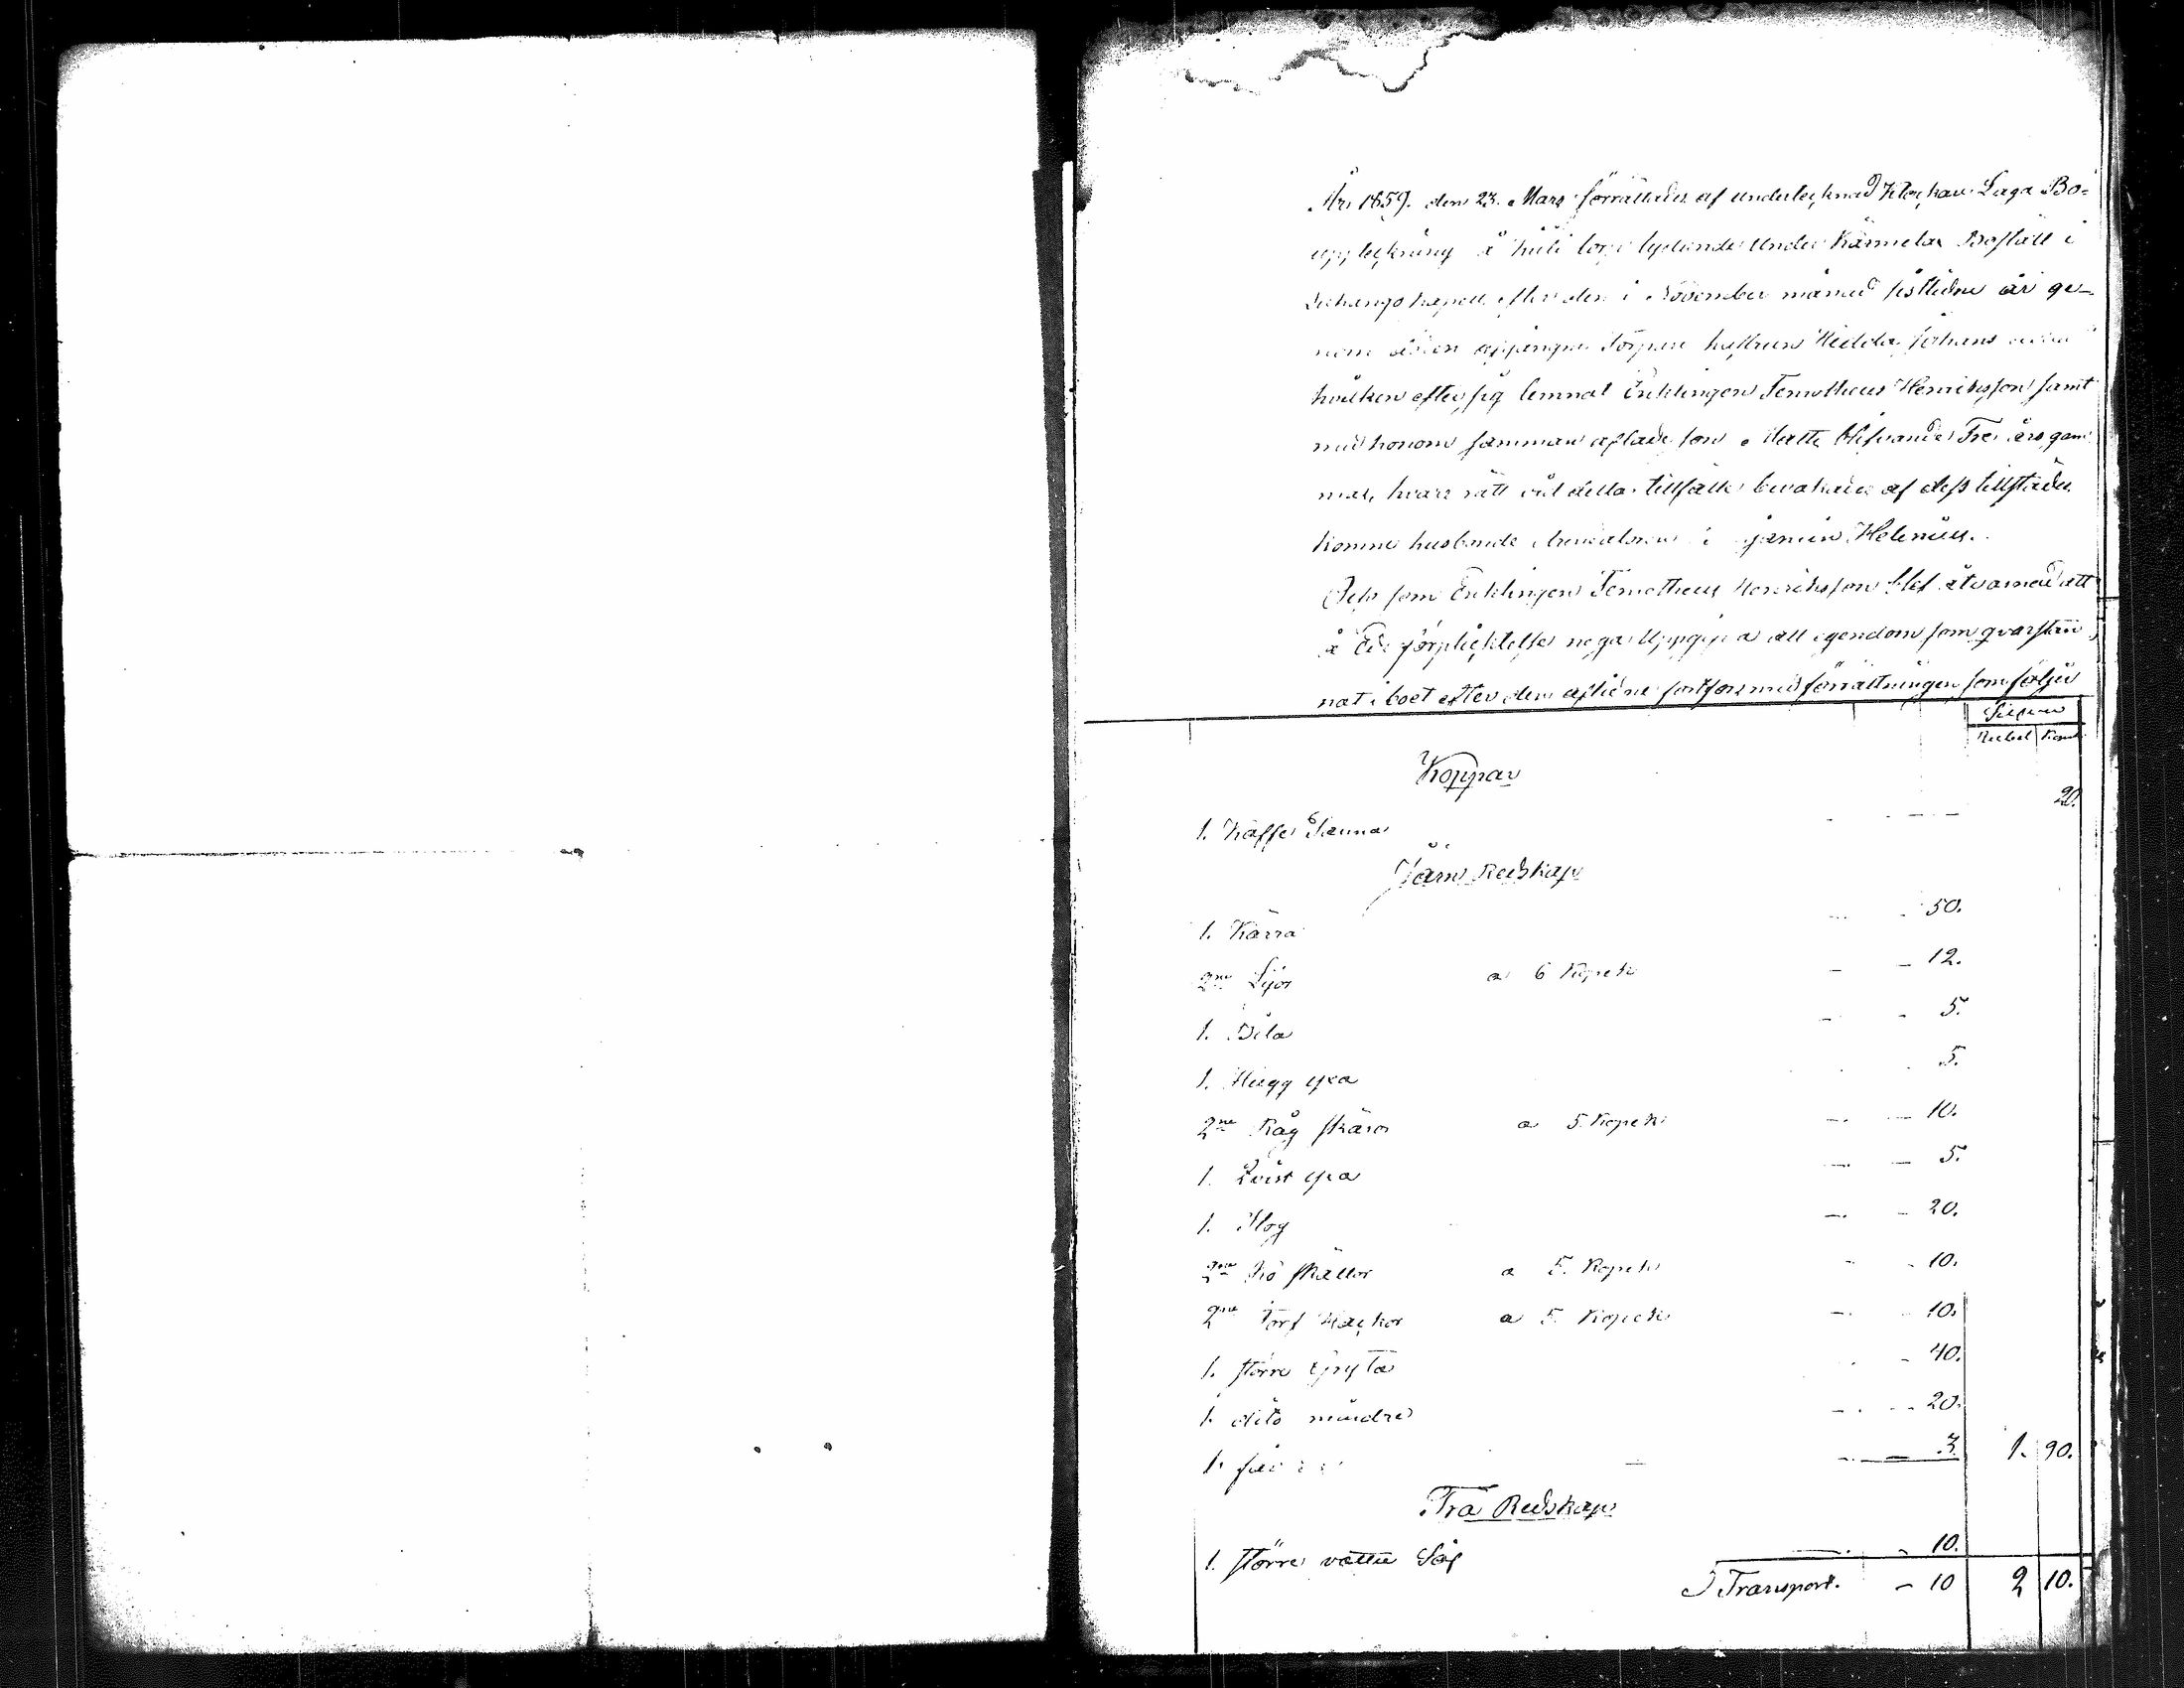 År 1859. den 23. Mars förrättades af undertecknad Klockare Laga Bo=
uppteckning å torp lydande under Kärmela Boställ i
kapell efter den i November månad sistledne år ge-
nom döden afgångne Torpare hustrun Hedda Johans
hvilken efter sig lemnat Enklingen Temotheus Henriksson samt
med honom samman aflade son Matts blifvande Tre års gam
mal, hvars rätt vid detta tillfälle bevakades af dess tillstädes
komne husbonde Helenius.
Och som Enklingen Temotheus Henriksson blef åtvarnad att
å Ed förpliktelse noga uppgifva all egendom som qvarstan
nat i boet efter den aflidne fortfors med förrättningen som följer
Silfver
Rubel Kopek
Koppar
1. Kaffe Panna - - 20.
Järn Redskap
1. Kärra - - 50.
2ne Lijor a 6 Kopek - - 12.
1. Bila - - 5.
1. Hugg yxa - - 5.
2ne Råg skäror a 5. Kopek - - 10.
1. Qvist yxa - - 5.
1. Plog - - 20.
2ne Ko skällor a 5. Kopek - - 10.
2ne Torf Hackor a 5. Kopek - - 10.
1. större Gryta - - 40.
1. dito mindre - - 20.
1. - - 3. 1. 90.
Trä Redskap
1. större vatten Så - - 10.
Transport. - 10 2 10.